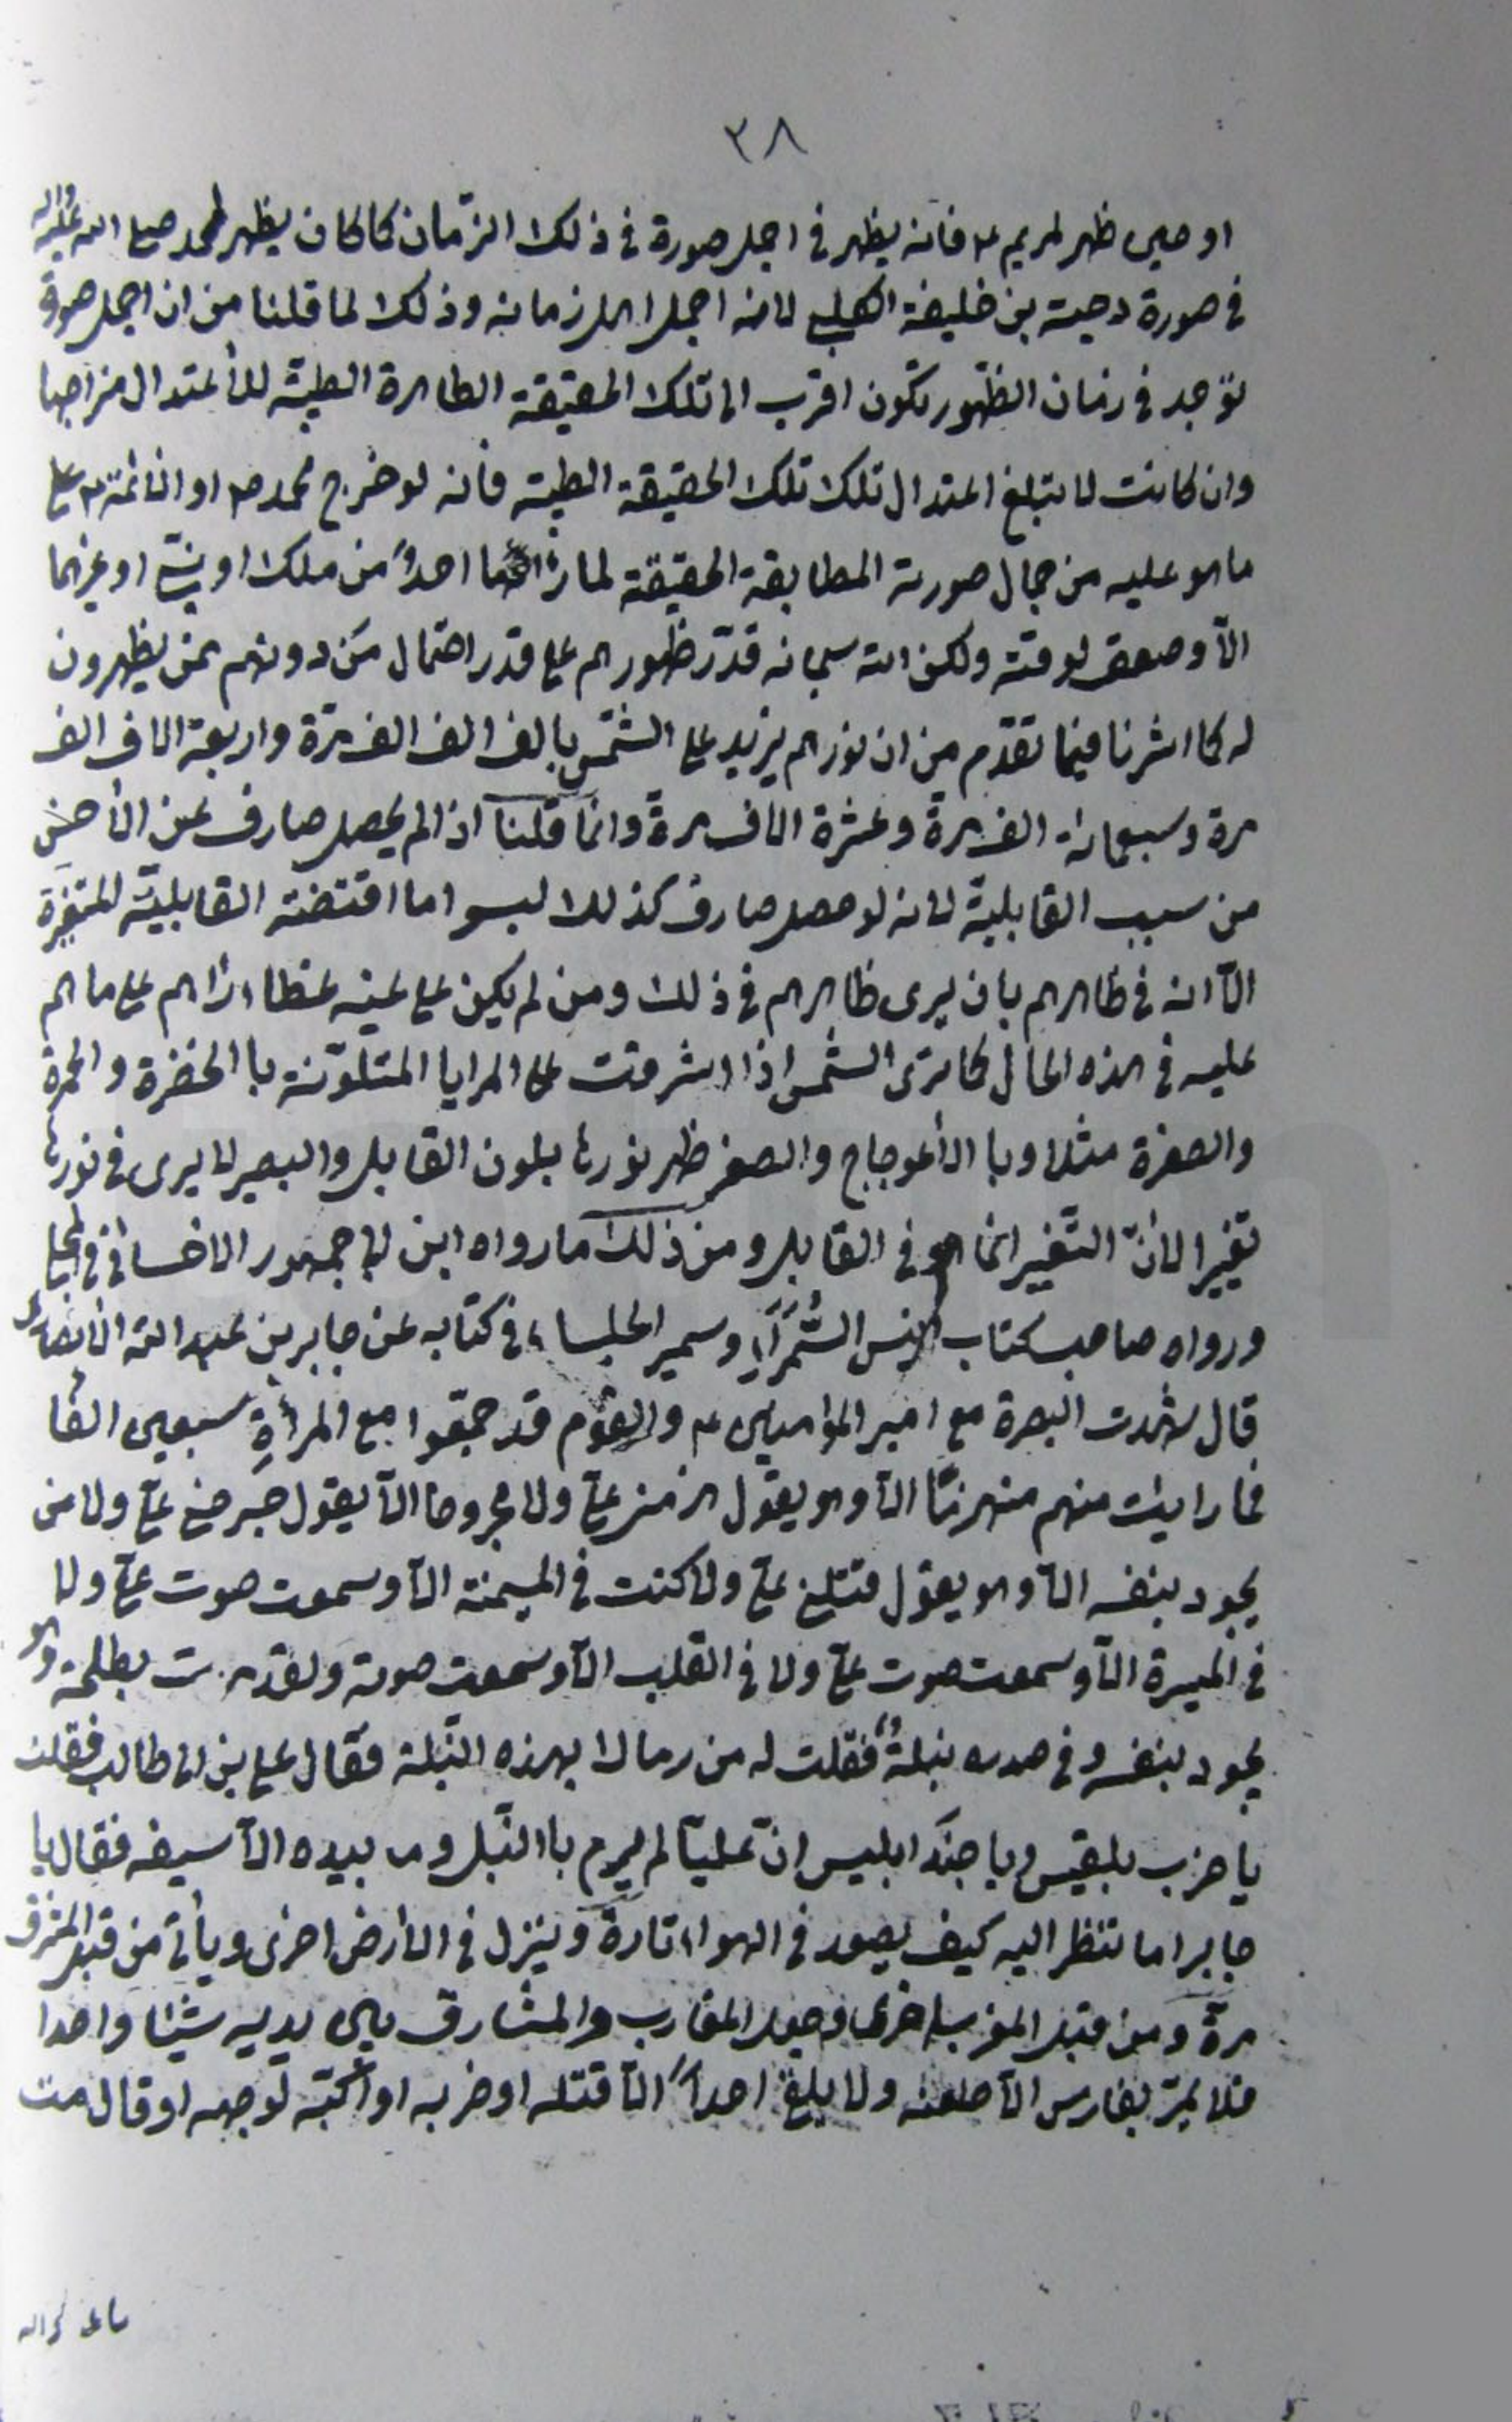 ٣٨
او حين ظهر لمريم ع فانه يظهر في اجمل صورة في ذلك الزّمان كما كان يظهر لمحمد صلى الله عليه واله
في صورة دحية بن خليفة الكلبي لانه اجمل اهل زمانه وذلك لما قلنا من ان اجمل صورة
توجد في زمان الظّهور تكون اقرب الى تلك الحقيقة الطاهرة الطيبة للأعتدال مزاجها
وان كانت لا تبلغ اعتدال تلك تلك الحقيقة الطيبة فأنه لو خرج محمد ص او الائمة ع على
ما هو عليه من جمال صورته المطابقة الحقيقة لما احدٌ من ملك او نبيّ او غيرهما
الّا وصعق لوقته ولكن الله سبحانه قدّر ظهورهم على قدر احتمال مَن دونهم ممن يظهرون
له كما اشرنا فيما تقدّم من ان نورهم يزيد على الشّمس بالف الف الف مرّة واربعة الاف الف
مرة وسبعمائة الف مرةً وعشرة الاف مرةً وانما قلنا اذا لم يحصل صارف عن الأحسن
من سبب القابليّة لانه لو حصل صارف كذلك لبسوا ما اقتضته القابليّة المتغيرة
الّا انه في ظاهرهم بان يرى ظاهرهم في ذلك ومن لم يكن على عينه غطاء رأهم على ما هم
عليه في هذه الحال كما ترى الشّمس اذا اشرقت على المرايا المتلوّنة با الخضرة والحمرة
والصفرة مثلا وبا الأعوجاج والصغر ظهر نورها بلون القابل والبصير لا يرى في نورها
تغيّرا لأنّ التّغير انما هو في القابل ومن ذلك ما رواه ابن ابي جمهور الاحسائي في المجلي
ورواه صاحب كتاب انيس السُّمَرَآءِ وسمير الجلساء في كتابه عن جابر بن عبد الله الأنصاري
قال شهدت البصرة مع امير المؤمنين ع والقوم قد جمّعوا مع المرأةِ سبعين الفًا
فما رايت منهم منهزمًا الّا وهو يقول هزمني عليّ ولا مجروحا الّا يقول جَرحني عليّ ولا من
يجود بنفسه الّا وهو يقول قتلني عليّ ولا كنت في الميمنة الّا وسمعت صوت عليّ ولا
في الميسرة الّا وسمعت صوت عليّ ولا في القلب الّا وسمعت صوته ولقد مررت بطلحة وهو
يجود بنفسه وفي صدره نبلةٌ فقلت له من رماك بهذه النّبلة فقال علي بن ابي طالب فقلت
يا حزب بلقيس ويا جند ابليس انّ عليّا لم يرم با النّبل وما بيده الّا سيفه فقال يا
جابر اما تنظر اليه كيف يصعد في الهواء تارةً وينزل في الأرض اخرى ويأتي من قبل المشرق
مرةً ومن قبل المغرب اخرى وجعل المغارب والمشارق بين يديه شيئا واحدا
فلا يمرّ بفارس الّا طعنه ولا يلق احداً الّا قتله او ضربه او اكبّه لوجهه او قال مت